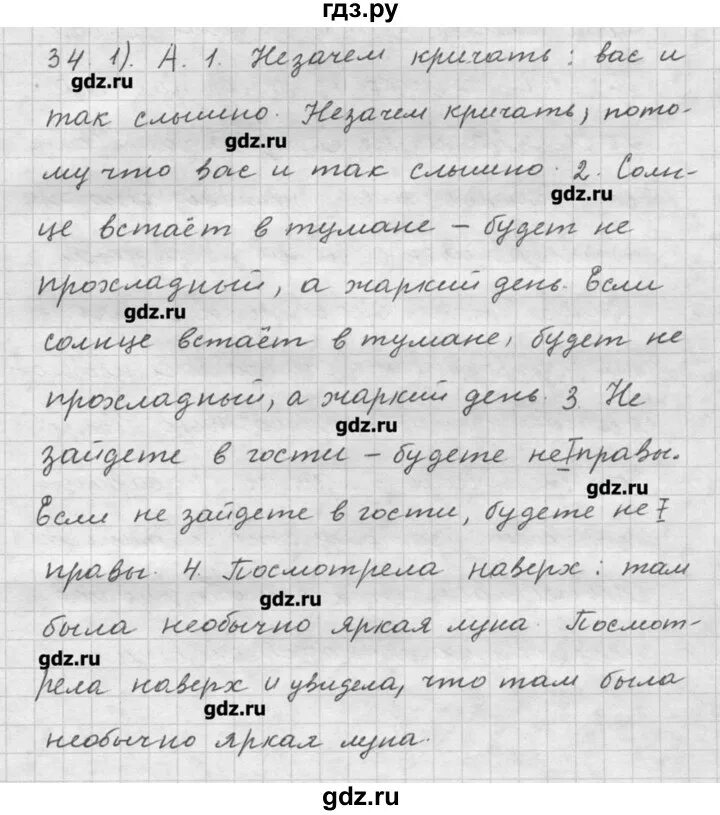 гдз.ру
34. 1). А. 1. Незачем кричать: вас и
gdz.ru
так слышно. Незачем кричать, пото-
gdz.ru
му что вас и так слышно. 2. Солн-
gdz.ru
це встаёт в тумане – будет не
прохладный, а жаркий день. Если
gdz.ru
солнце встаёт в тумане, будет не
прохладный, а жаркий день. 3. Не
gdz.ru
зайдете в гости – будете не правы.
gdz.ru
Если не зайдете в гости, будете не
правы. 4. Посмотрела наверх: там
gdz.ru
была необычно яркая луна. Посмот-
gdz.ru
рела наверх и увидела, что там была
gdz.ru
необычно яркая луна.
gdz.ru